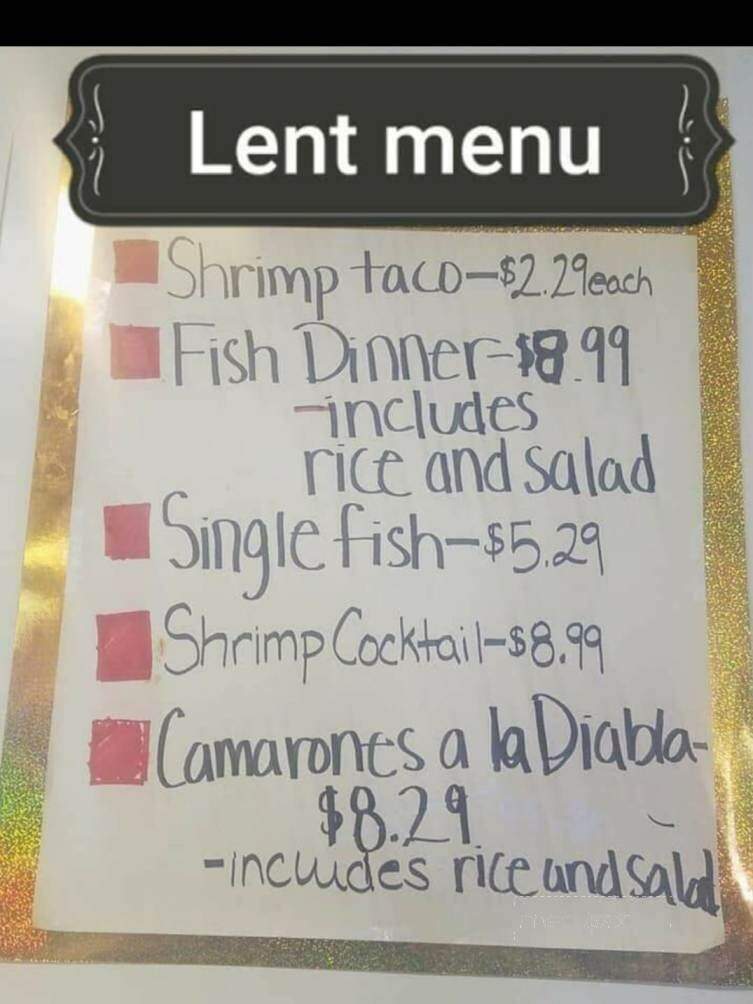 Lent menu
Shrimp taco-$2.29each
Fish Dinner-$8.99
-includes
rice and salad
Single fish-$5.29
Shrimp Cocktail-$8.99
Camarones a la Diabla-
$8.29
-includes rice and salad